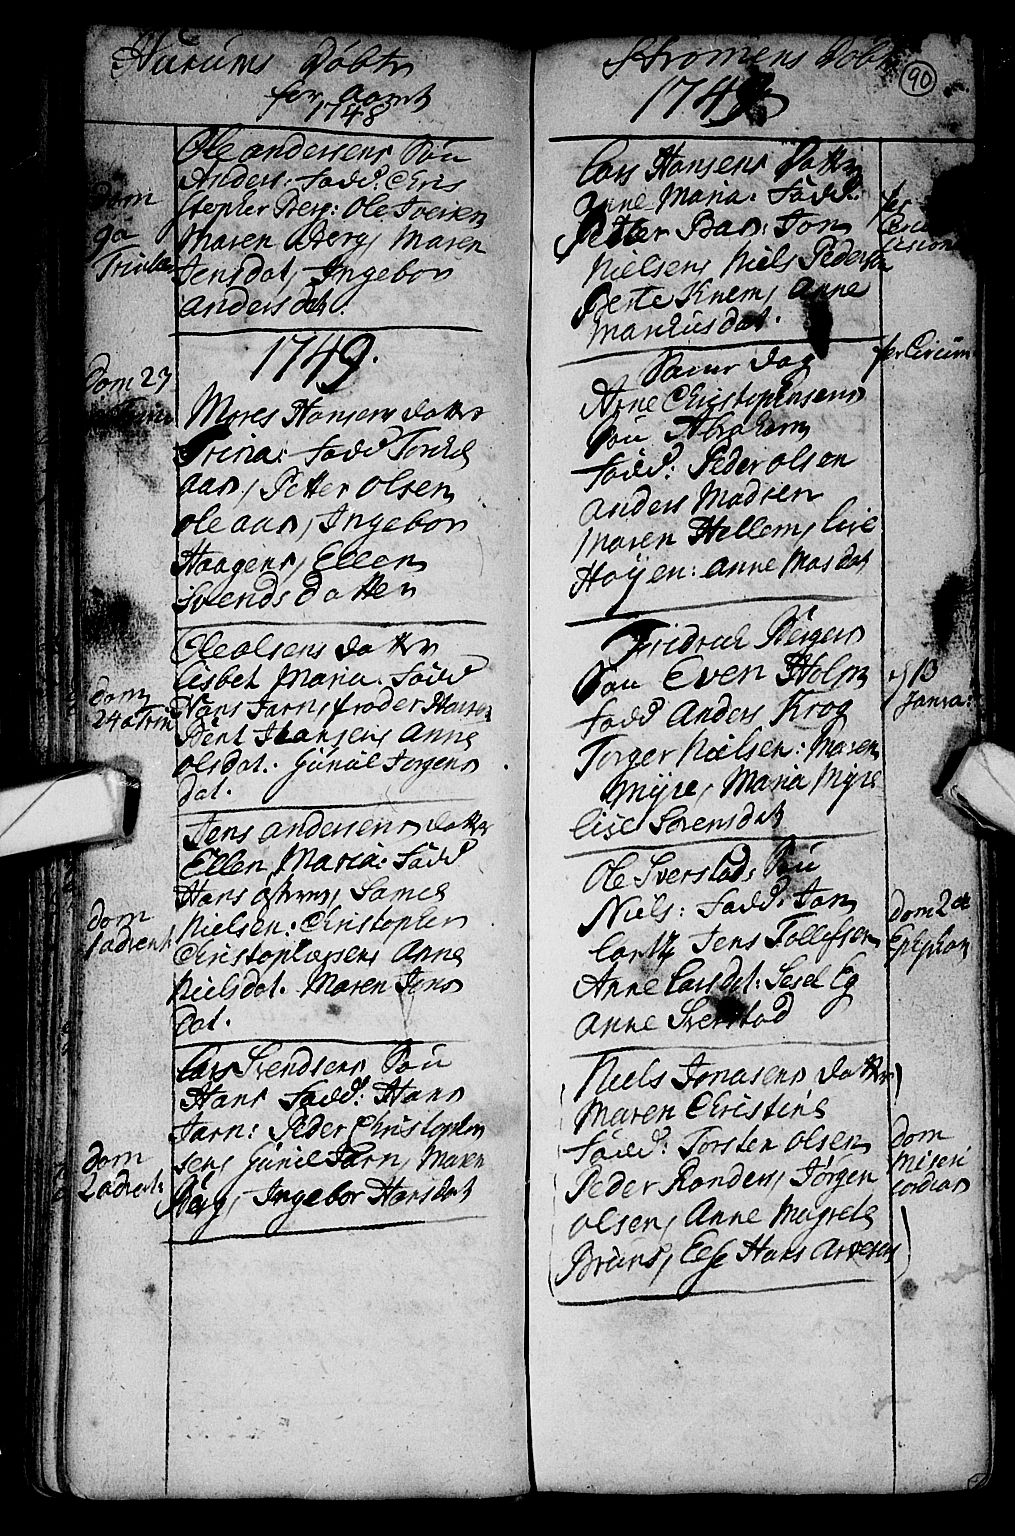 Hurums Döbte
for aaret
1748
dom
9 a
Trinitat
Ole andersens Sön
Anders: Fadd: Chris
stopher Berg: Ole Iversen
Maren Berg, Maren
Jensdat, Ingebor
andersdat.
1749.
dom 23
Trini
Mores Hansens datter
Trina: Fadd Torkel
aas, Petter olsen,
ole aas, Ingebor
Haagens, Ellen
Svends datter
dom
24 a Trin
Ole olsens datter
Lisbet Maria. Fadd
Hans Jarn, Peder Hansen
Bent Hansen, Anne
olsdat. Gunil Jorgens
dat.
dom
1 advent
Jens andersens datter
Ellen Maria: Fadd
Hans
Nielsen: Christopher
Christophersen Anne
Nielsdat. Maren Jons
dat.
dom
2 advent:
Lars Svendsens Sön
Hans Fadd: Hans
Jarn: Peder Christopher
sen, Gunil Jarn, Maren
Berg, Ingebor Hansdat
Strömens Döbte
90
1749
fer
Circum
cision
Lars Hansens Datter
Anne Maria. Fadd:
Petter Bas: Jon
Nielsen, Niels Pedersen
Berte Knem, Anne
Markusdat.
fer Circum
Samme dag
Arne Christophersens
Sön Abraham
Fadd: Peder olsen
Anders Madsen
Maren Hellem, Lise
Höyen: anne Masdat
d 13
Janua:
Fridrich Bergers
Sön Even Holm
Fadd Anders Krog
Torger Nielsen: Maren
Myre, Maria Myre
Lise Sörensdat
dom 2 et
Epiphan
Ole Sverstad, Sön
Niels: Fadd: Jon
Larsen Jens Tollefsen
Anne Larsdat: Sesel Eg
Anne Sverstad
dom
Miseri
cordias
Niels Jonasens datter
Maren Christine
Fadd: Torsten olsen
Peder Randers, Jörgen
olsen, Anne Magrete
Bruns, Else Hans Arvesens